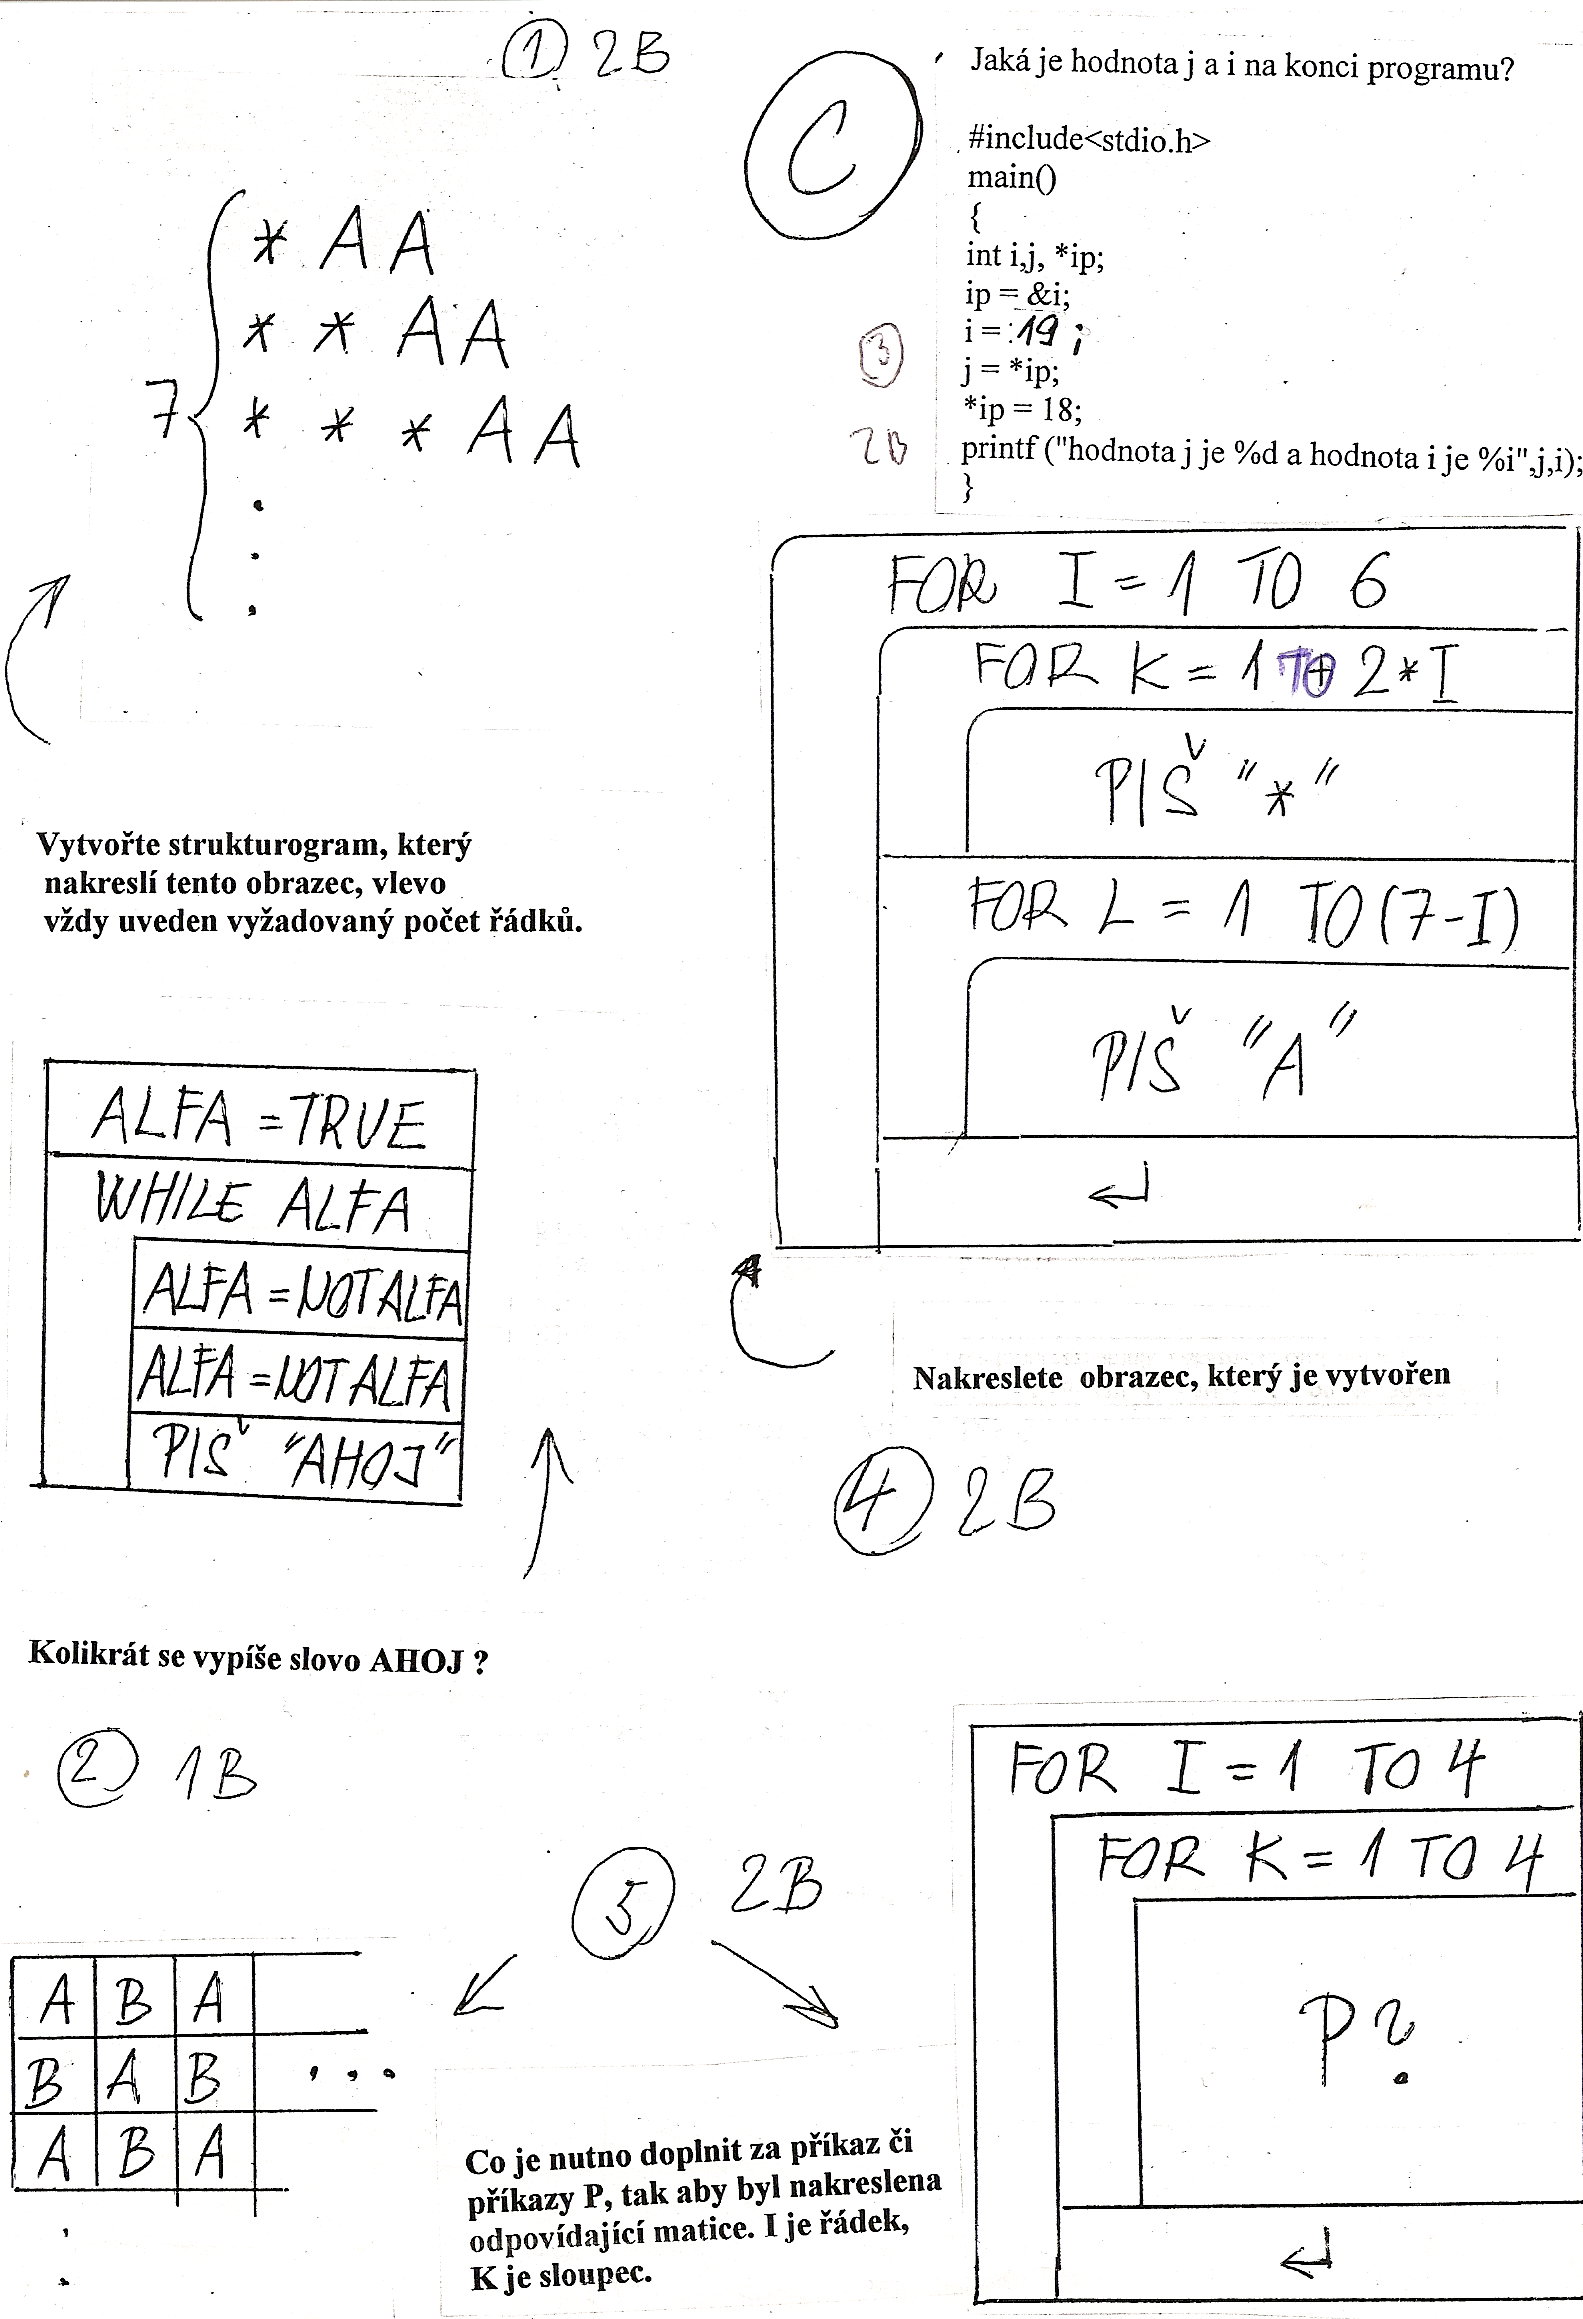 ① 2B
* A A
* * A A
7
* * * A A
.
.
.
Vytvořte strukturogram, který
nakreslí tento obrazec, vlevo
vždy uveden vyžadovaný počet řádků.
C
Jaká je hodnota j a i na konci programu?
#include<stdio.h>
main()
{
int i,j, *ip;
ip = &i;
i = 19 ;
j = *ip;
*ip = 18;
printf ("hodnota j je %d a hodnota i je %i",j,i);
}
③
2B
FOR I = 1 TO 6
FOR K = 1 TO 2*I
PIŠ "*"
FOR L = 1 TO (7-I)
PIŠ "A"
↵
Nakreslete obrazec, který je vytvořen
④ 2B
ALFA = TRUE
WHILE ALFA
ALFA = NOT ALFA
ALFA = NOT ALFA
PIŠ "AHOJ"
Kolikrát se vypíše slovo AHOJ ?
② 1B
⑤ 2B
A B A
B A B ...
A B A
.
.
Co je nutno doplnit za příkaz či
příkazy P, tak aby byl nakreslena
odpovídající matice. I je řádek,
K je sloupec.
FOR I = 1 TO 4
FOR K = 1 TO 4
P?
↵